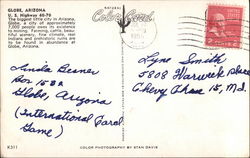 GLOBE, ARIZONA
U. S. Highway 60-70
The biggest little city in Arizona,
Globe, a city of approximately
7,000 people owes its existence
to mining. Farming, cattle, beau-
tiful scenery, fine climate, real
Indians and prehistoric ruins are
to be found in abundance at
Globe, Arizona.
NATURAL
Color Card
Linda Besner
Box 1584
Globe, Arizona
(International Card
Game)
Lyne Smith
5808 Warwick Place
Chevy Chase 15, Md.
K311
COLOR PHOTOGRAPHY BY STAN DAVIS